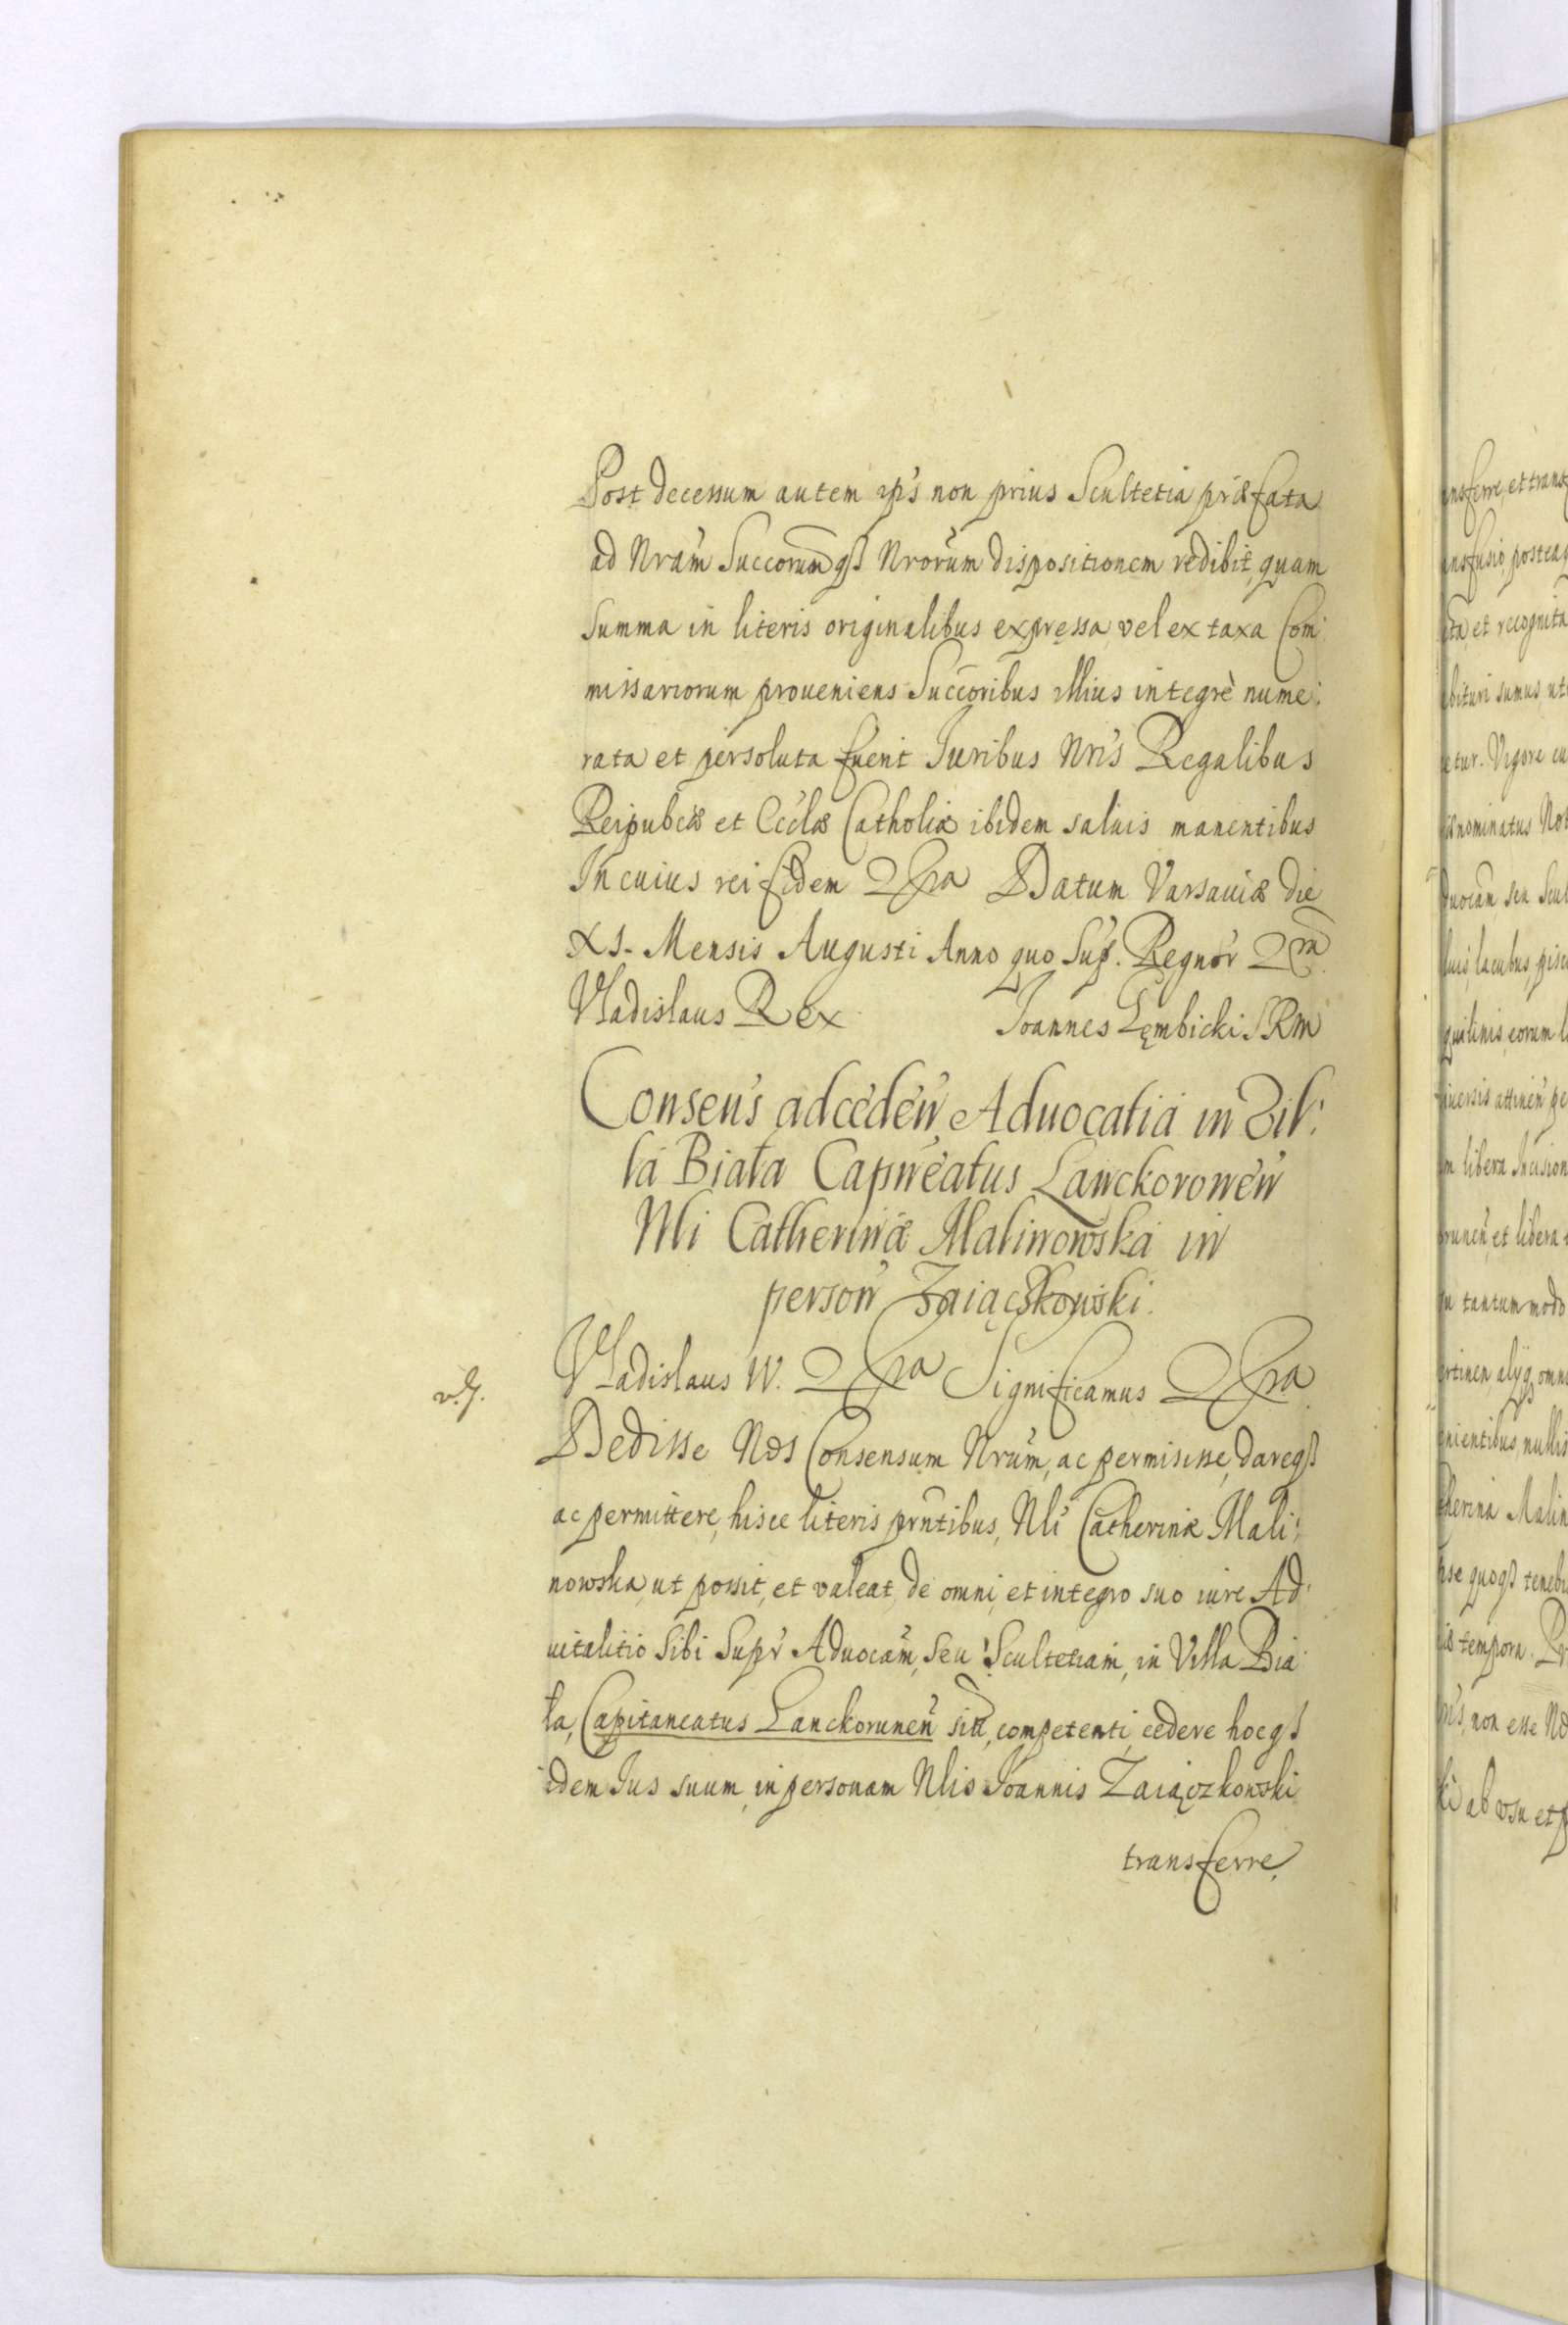 Post decessum autem ips non prius Scultetia præfata
ad Nram Succorumqß Nrorum dispositionem redibit, quam
summa in literis originalibus expressa vel ex taxa Com:
missariorum proueniens Succoribus illius integrè nume:
rata et persoluta fuerit Iuribus Nris Regalibus
Reipubcæ et Ecclæ Catholicæ ibidem saluis manentibus
In cuius rei fidem Datum Varsauiæ die
XI. Mensis Augusti Anno quo Sup. Regnor
Vladislaus Rex Joannes Lęmbicki SRM
Consens ad ceden Aduocatia in Vil:
la Biała Capneatus Lanckoronen
Nli Catherinæ Malinowska in
person Zaiączkowski.
Vladislaus IV. Significamus
Dedisse Nos Consensum Nrum, ac permisisse, dareqß
ac permittere, hisce literis prntibus, Nli Catherinæ Mali:
nowska, ut possit, et valeat, de omni, et integro suo iure Ad
uitalitio sibi supr Aduocam, seu Scultetiam, in Villa Bia
ła, Capitaneatus Lanckorunen sitt, competenti, cedere hocqß
idem Ius suum, in personam Nlis Joannis Zaiączkowski
transferre,